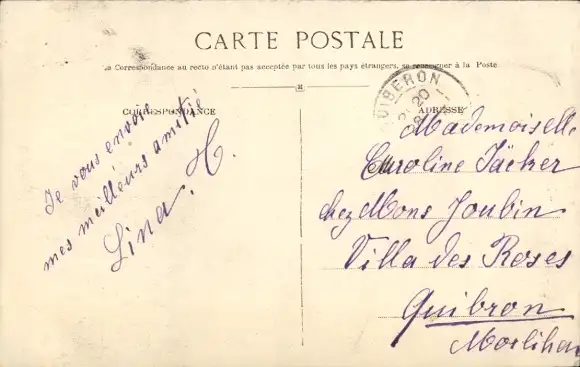 CARTE POSTALE
La Correspondance au recto n'étant pas acceptée par tous les pays étrangers, se renseigner à la Poste
CORRESPONDANCE
Je vous envoie
mes meilleurs amitié
Lina. H.
QUIBERON
20
ADRESSE
Mademoiselle
Caroline Jäcker
chez Mons Joubin
Villa des Roses
Quibron
Morlihan